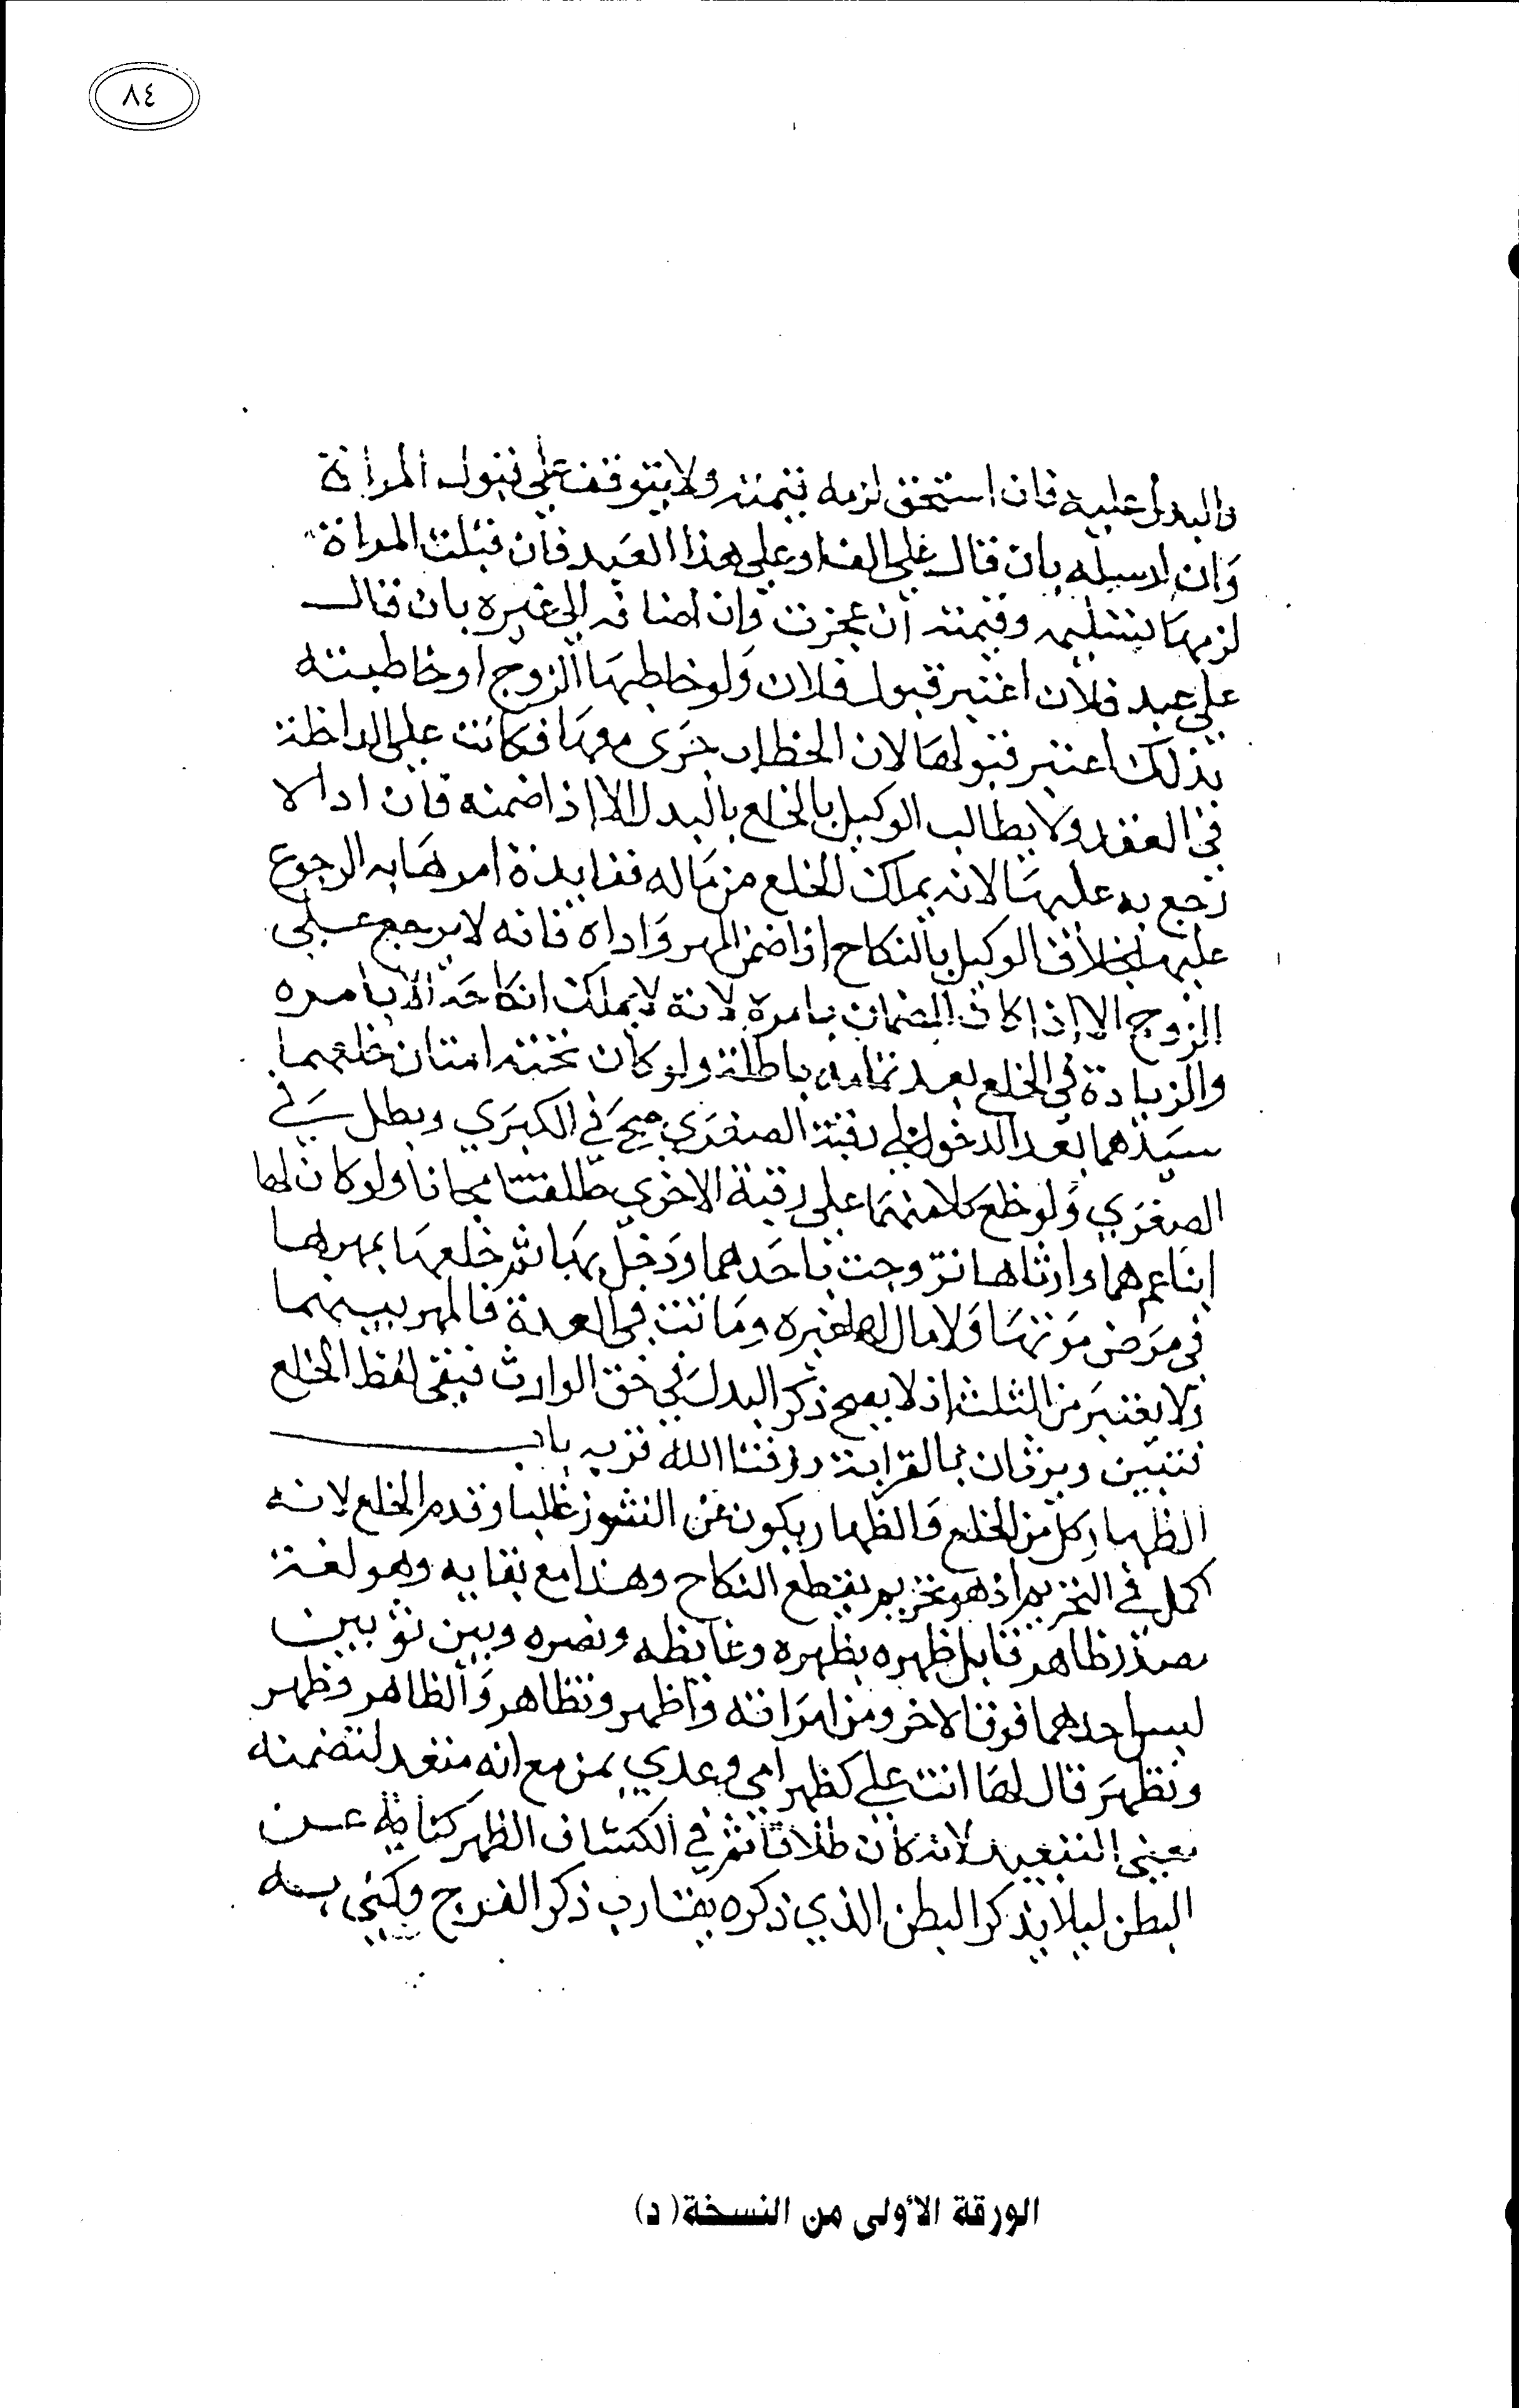 ٨٤
والبدل عليه فان استحق لزمه قيمته ولا يتوقف على قبول المراة
وان ارسله بان قال علي الف او علي هذا العبد فان قبلت المراة
لزمها تسليمه وقيمته ان عجزت وان اضافه الي غيره بان قال
علي عبد فلان اعتبر قبول فلان ولو خاطبها الزوج او خاطبته
بذلك اعتبر قبولها لان الخطاب جري معها فكانت علي الداخلة
في العقد ولا يطالب الوكيل بالخلع بالبدل الا اذا ضمنه فان اداه
رجع به عليها لانه يملك الخلع من ماله ففايدة امرها به الرجوع
عليها بخلاف الوكيل بالنكاح اذا ضمن المهر واداه فانه لا يرجع علي
الزوج الا اذا كان الضمان بامره لانه لا يملك انكاحه الا بامره
والزيادة في الخلع بعد تمامه باطلة ولو كان تحته امتان خلعهما
سيدهما بعد الدخول علي رقبة الصغري صح في الكبري وبطل في
الصغري ولو خلع كلا منهما علي رقبة الاخري طلقتا مجانا ولو كان لها
ابنا عم هما وارثاها تزوجت باحدهما ودخل بها ثم خلعها بمهرها
في مرض موتها ولا مال لها غيره وماتت في العدة فالمهر بينهما
ولا يعتبر من الثلث اذ لا يصح ذكر البدل في حق الوارث فبقي لفظ الخلع
فتبين ويرثان بالقرابة رزقنا الله قربه باب
الظهار كل من الخلع والظهار يكون عن النشوز غالبا وقدم الخلع لانه
اكمل في التحريم اذ هو تحريم يقطع النكاح وهذا مع بقايه وهو لغة
مصدر ظاهر قابل ظهره بظهره وغايظه ونصره وبين ثوبين
لبس احدهما فوق الاخر ومن امراته واظهر وتظاهر والظاهر وظهر
وتظهر قال لها انت علي كظهر امي وعدي بمن مع انه متعد لتضمنه
معني التبعيد لانه كان طلاقا ثم في الكشاف الظهر كناية عن
البطن ليلا يذكر البطن الذي ذكره يقارب ذكر الفرج وكني به
الورقة الأولى من النسخة (د)